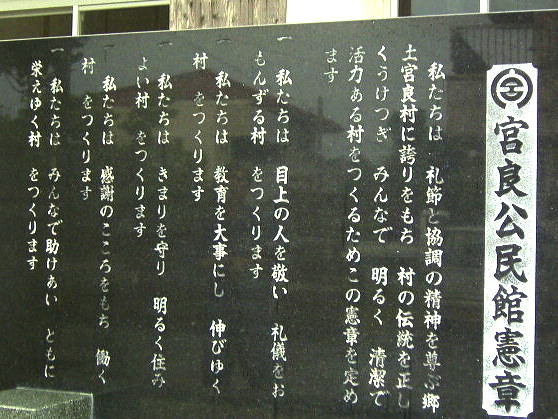 宮良公民館憲章
私たちは 礼節と協調の精神を尊ぶ郷
土宮良村に誇りをもち 村の伝統を正し
くうけつぎ みんなで 明るく 清潔で
活力ある村をつくるためこの憲章を定め
ます
一 私たちは 目上の人を敬い 礼儀をお
もんずる村 をつくります
一 私たちは 教育を大事にし 伸びゆく
村 をつくります
一 私たちは きまりを守り 明るく住み
よい村 をつくります
一 私たちは 感謝のこころをもち 働く
村 をつくります
一 私たちは みんなで助けあい ともに
栄えゆく村 をつくります